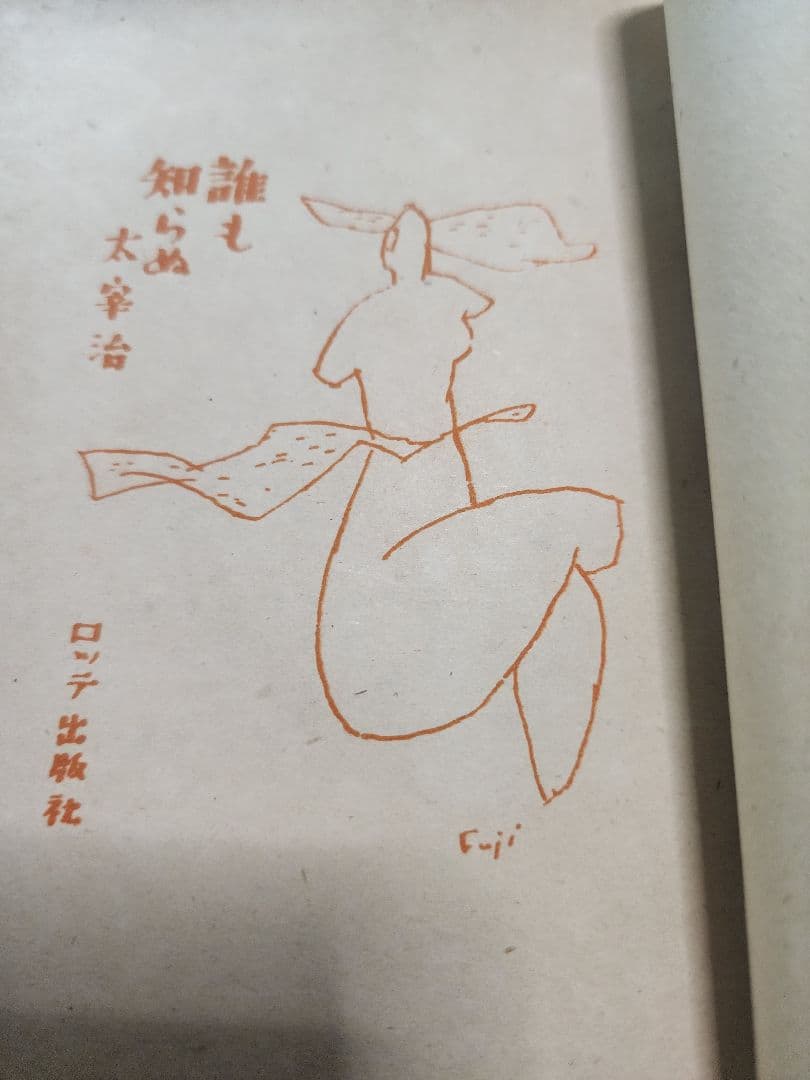 誰も
知らぬ
太宰治
ロッテ出版社
Fuji